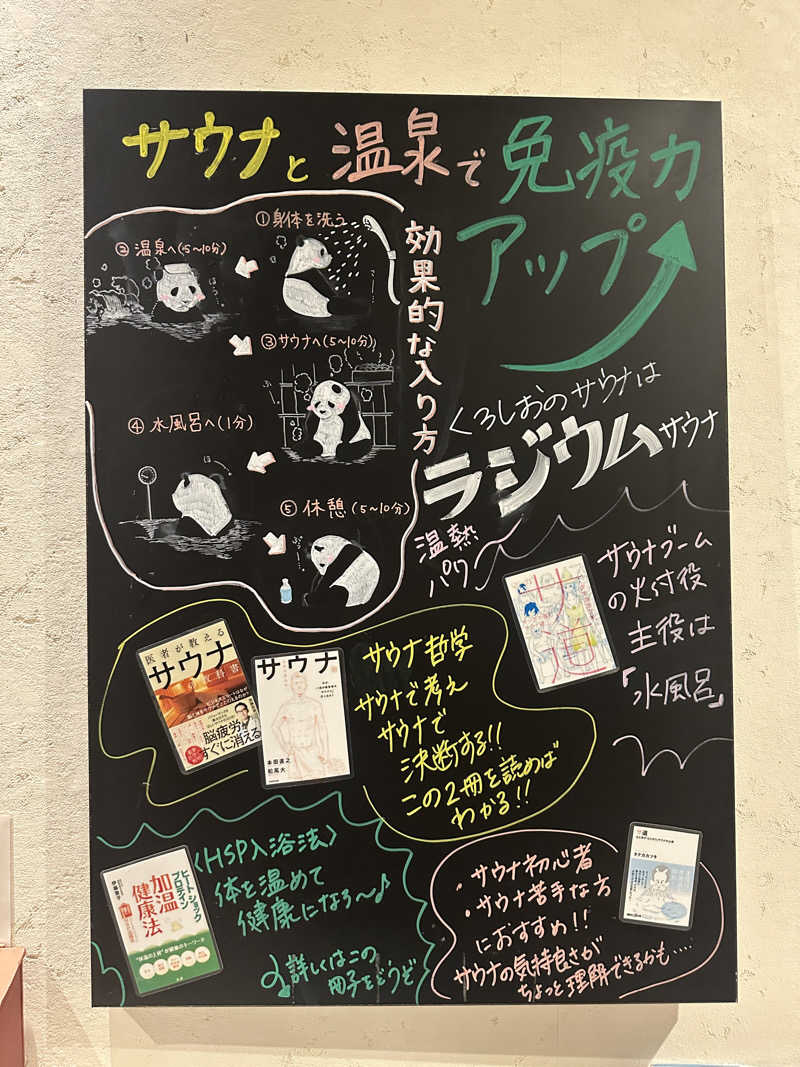 サウナと温泉で免疫力
アップ
効果的な入り方
①身体を洗う
②温泉へ(5〜10分)
③サウナへ(5〜10分)
④水風呂へ(1分)
⑤休憩(5〜10分)
くろしおのサウナは
ラジウムサウナ
温熱
パワ〜
サウナブーム
の火付役
主役は
「水風呂」
サ道
医者が教える
サウナ
教科書
脳疲労が
すぐに消える
サウナ
本田直之
松尾大
サウナ哲学
サウナで考え
サウナで
決断する!!
この2冊を読めば
わかる!!
ヒートショック
プロテイン
加温
健康法
伊藤要子
〈HSP入浴法〉
体を温めて
健康になろ〜♪
詳しくはこの
冊子をどうぞ
サ道
タナカカツキ
・サウナ初心者
・サウナ苦手な方
におすすめ!!
サウナの気持良さが
ちょっと理解できるかも……